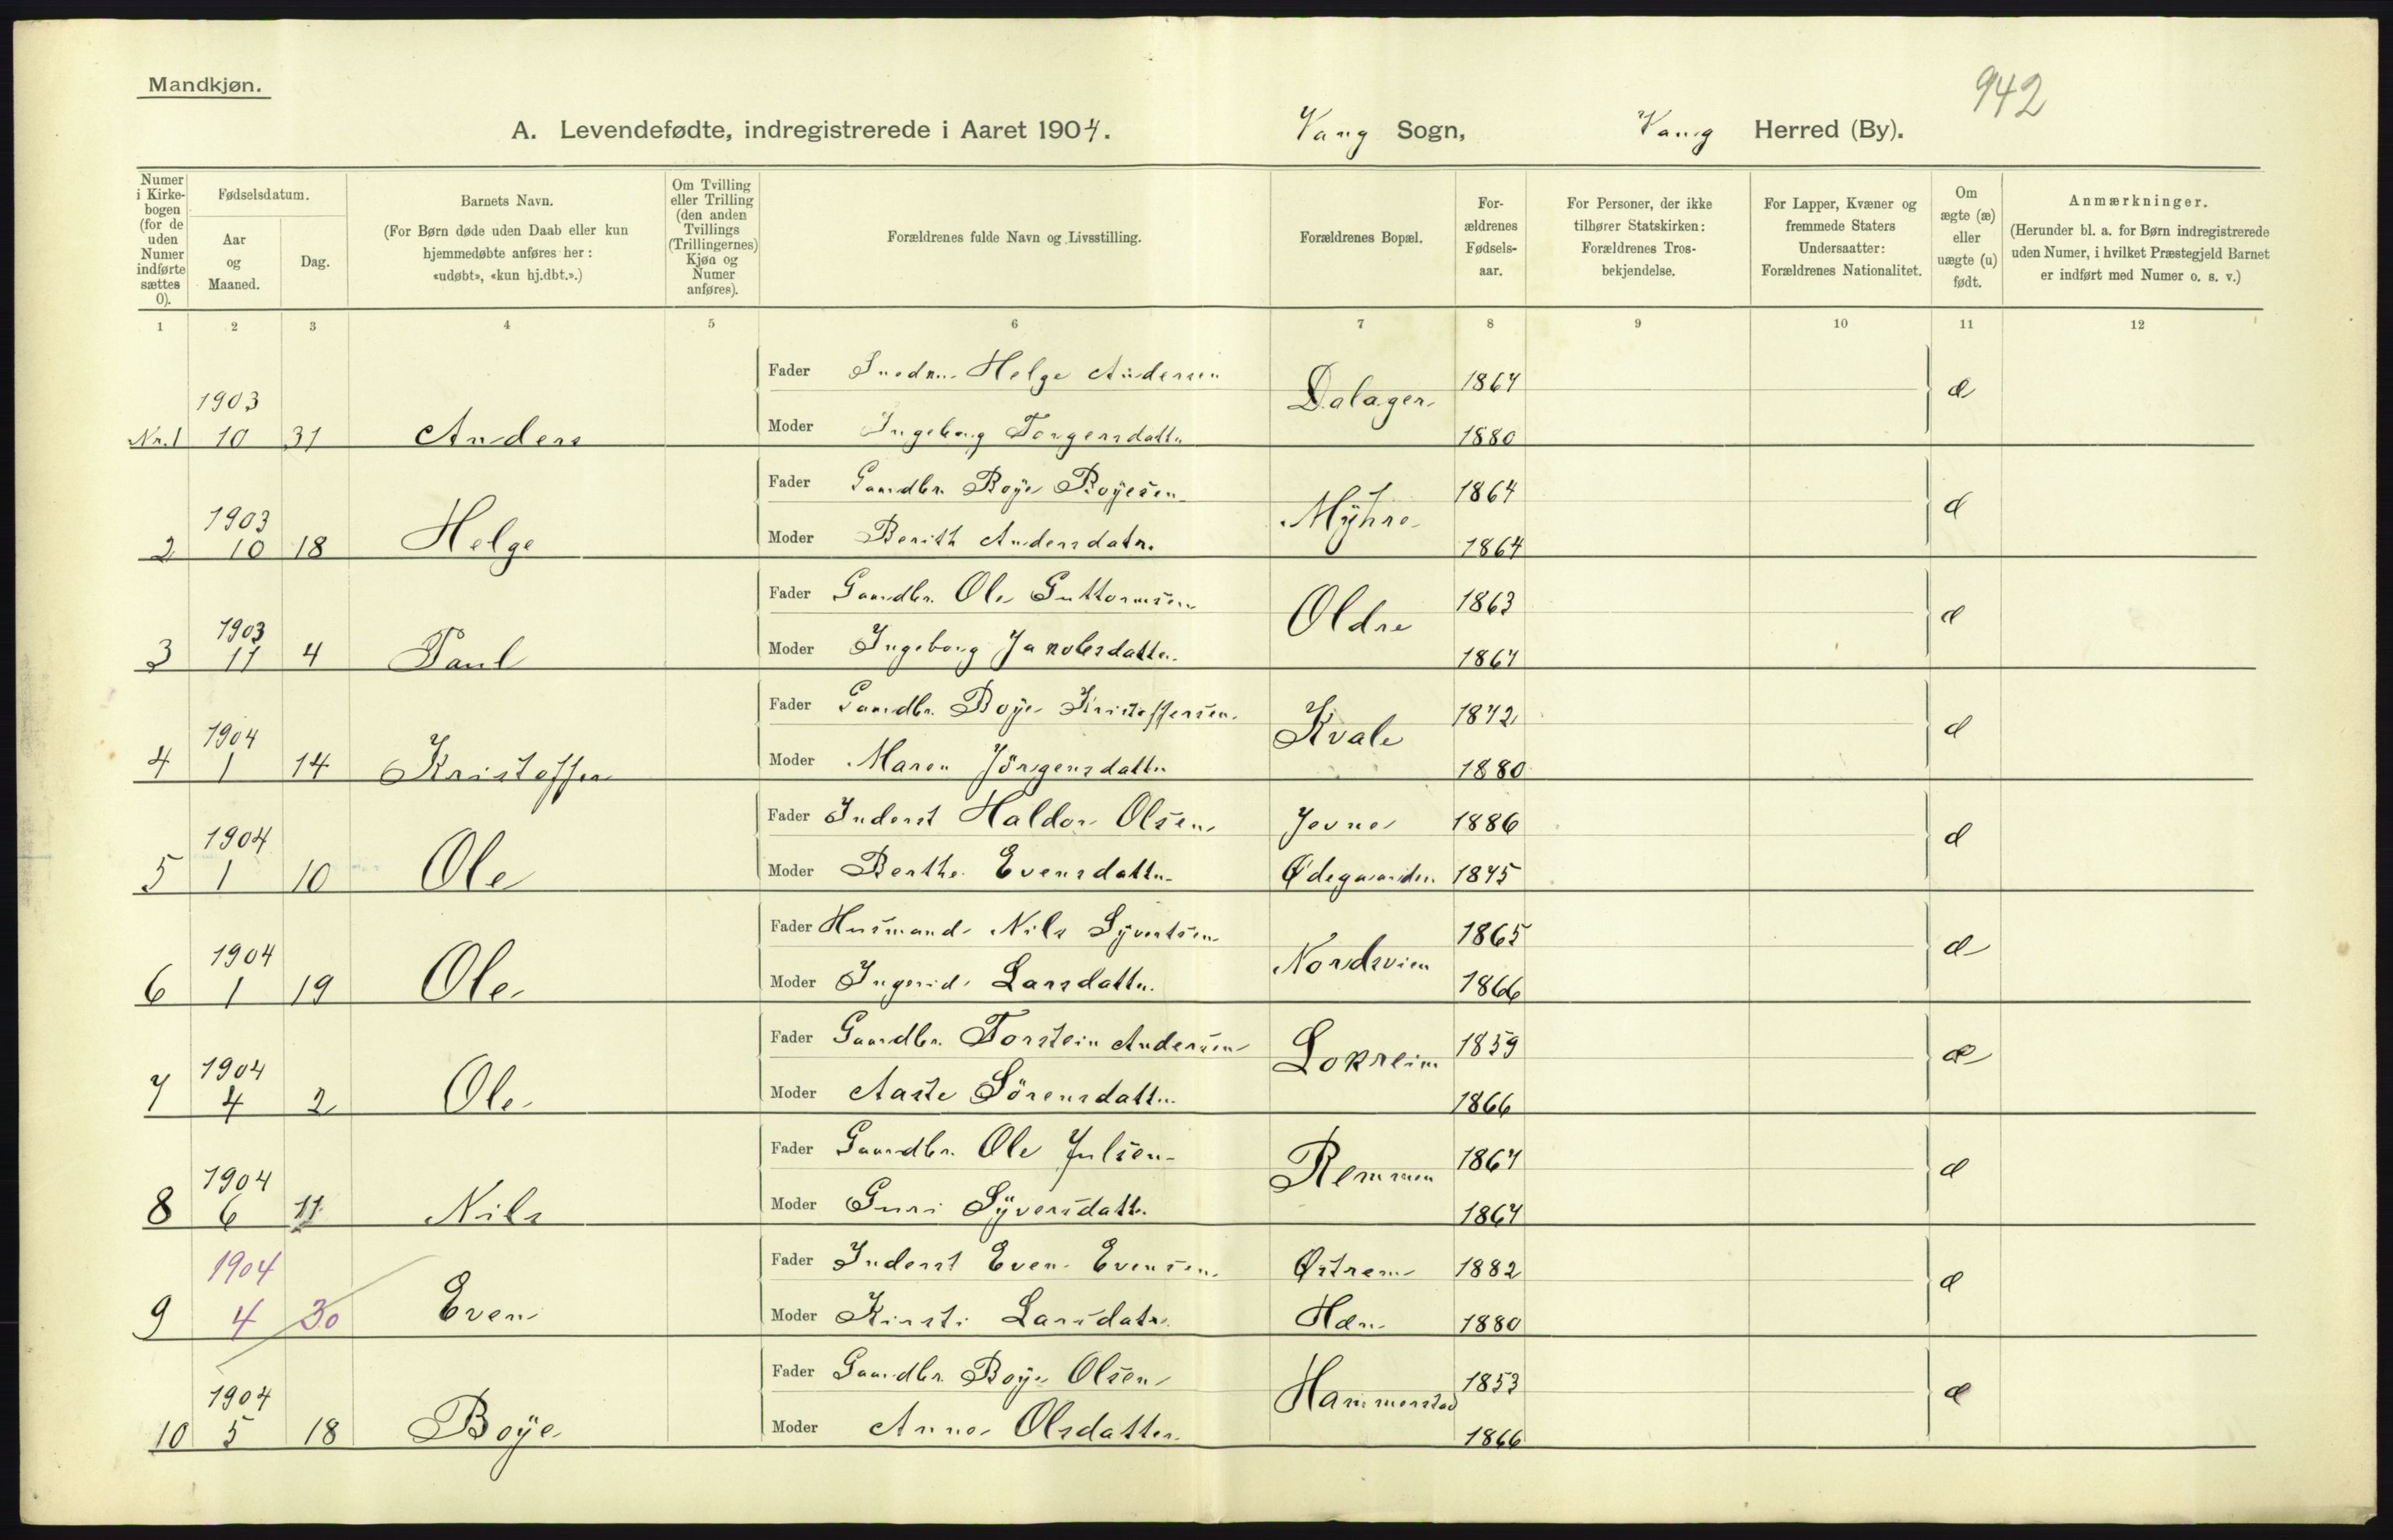 Mandkjøn.
942
A. Levendefødte, indregistrerede i Aaret 1904. Vang Sogn, Vang Herred (By).
Numer i Kirke-bogen (for de uden Numer indførte sættes 0).
Fødselsdatum.
Aar og Maaned.
Dag.
Barnets Navn.
(For Børn døde uden Daab eller kun hjemmedøbte anføres her: «udøbt», «kun hj.dbt.».)
Om Tvilling eller Trilling (den anden Tvillings (Trillingernes) Kjøn og Numer anføres).
Forældrenes fulde Navn og Livsstilling.
Forældrenes Bopæl.
For-ældrenes Fødsels-aar.
For Personer, der ikke tilhører Statskirken: Forældrenes Tros-bekjendelse.
For Lapper, Kvæner og fremmede Staters Undersaatter: Forældrenes Nationalitet.
Om ægte (æ) eller uægte (u) født.
Anmærkninger.
(Herunder bl. a. for Børn indregistrerede uden Numer, i hvilket Præstegjeld Barnet er indført med Numer o. s. v.)
1 2 3 4 5 6 7 8 9 10 11 12
Fader Helge Andersen Dalager 1867 æ
Nr. 1 1903 10 31 Anders Moder Ingeborg Torgersdatter 1880
Fader Gaardbr. Boye Boyesen Myhre 1864 æ
2 1903 10 18 Helge Moder Berith Andersdatr. 1864
Fader Gaardbr. Ole Guttormsen Oldre 1863 æ
3 1903 11 4 Paul Moder Ingeborg Jakobsdatter 1867
Fader Gaardbr. Boye Kristoffersen Kvale 1872 æ
4 1904 1 14 Kristoffer Moder Maren Jörgensdatter 1880
Fader Inderst Haldor Olsen Jevne 1886 æ
5 1904 1 10 Ole Moder Berthe Evensdatter Ødegaarden 1875
Fader Husmand Nils Syvertsen Nordsvien 1865 æ
6 1904 1 19 Ole Moder Ingerid Larsdatter 1866
Fader Gaardbr. Torstein Andersen Lokreim 1859 æ
7 1904 4 2 Ole Moder Aaste Sörensdatter 1866
Fader Gaardbr. Ole Julsen Remmen 1867 æ
8 1904 6 11 Nils Moder Guri Syversdatter 1867
Fader Inderst Even Evensen Østrem 1882 æ
9 1904 4 30 Even Moder Kirsti Larsdatr. Hæn 1880
Fader Gaardbr. Boye Olsen Hammerstad 1853 æ
10 1904 5 18 Boye Moder Anne Olsdatter 1866